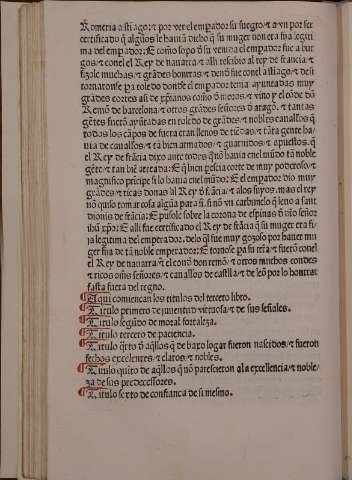 Romeria a sctiago: τ por ver el empador su suegro: τ avn por ser
certificado q̃ algũos le hauiã dicho q̃ su muger non era fija legiti
ma del empador: E como sopo d̃ su venida el empador fue a bur
gos: τ con el Rey de nauarra τ alli rescibio al rey de francia τ
fizole muchas τ grãdes honrras: τ dende fue con el a sctiago: τ desi
tornaronse pa toledo donde el empador tenia ayuntadas muy
grãdes cortes assi de xp̃ianos como d̃ moros: τ vino y el cõde dõ
Remõ de barcelona: τ otros grãdes señores d̃ aragõ. τ tantas
gentes fuerõ ayũtadas en toledo de grãdes τ nobles caualleros q̃
todos los cãpos de fuera eran llenos de tiẽdas: τ tãta gente ha
uia de caualleros τ tã bien armados: τ guarnidos τ apuestos. q̃
el Rey de frãcia dixo ante todos q̃ nõ hauia en el mũdo tã noble
gẽte: τ tan biẽ arreada: E q̃ bien parescia corte de muy poderoso: τ
magnifico principe si lo hauia en el mũdo: E el empador dio muy
grãdes τ ricas donas al Rey d̃ frãcia: τ alos suyos. mas el rey
nõ quiso tomar cosa alguna para si. si nõ vn carbunclo q̃ leuo a sant
dionis de frãcia: E pusole sobre la corona de espinas d̃ nr̃o señor
ihũ xp̃o: E alli fue certificado el Rey de frãcia q̃ su muger era fi
ja legitima del emperador. delo q̃l fue muy gozoso por hauer mu
ger fija de tã noble emperador: E tornose pa su tr̃ra τ fuerõ con el
el Rey de nauarra τ el conde don remõ: τ otros muchos condes
τ ricos omẽs señores: τ caualleros de castilla: τ de leõ por lo honrrar
fasta fuera del regno.
¶ Aqui comiençan los titulos del tercero libro.
¶ Titulo primero de juuentud virtuosa: τ de sus señales.
¶ Titulo segũdo de moral fortaleza.
¶ Titulo tercero de paciencia.
¶ Titulo q̃rto d̃ aq̃llos q̃ de baxo logar fueron nascidos: τ fueron
fechos excelentes: τ claros: τ nobles.
¶ Titulo quito de aq̃llos q̃ nõ parescieron ala excellencia: τ noble
za de sus predecessores.
¶ Titulo sexto de confiança de si mesmo.